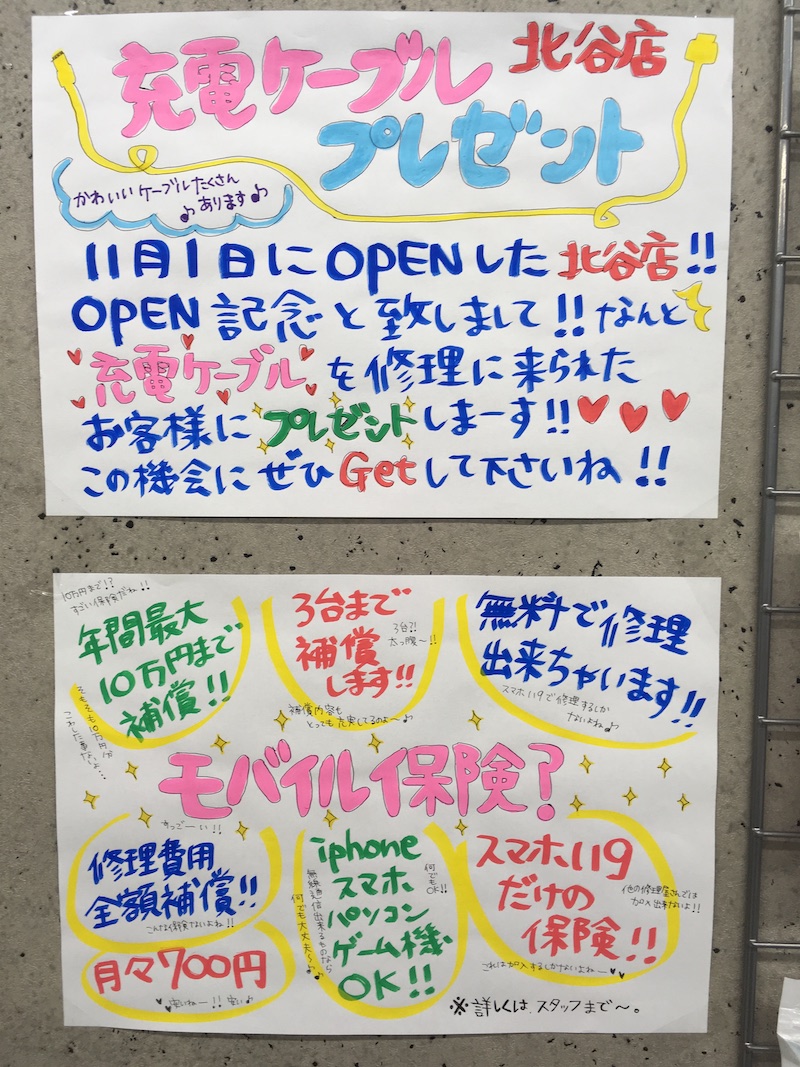 充電ケーブル 北谷店
プレゼント
かわいいケーブルたくさん
あります♪
11月1日にOPENした北谷店!!
OPEN記念と致しまして!!なんと
充電ケーブルを修理に来られた
お客様にプレゼントしまーす!!
この機会にぜひGetして下さいね!!
10万円まで!?
すごい保険だね!!
年間最大
10万円まで
補償!!
そもそも10万円分
こわした事ないよ…
3台まで
補償
します!!
3台?!
太っ腹〜!!
補償内容も
とっても充実してるのよ〜♪
無料で修理
出来ちゃいます!!
スマホ119で修理するしか
ないよね♪
モバイル保険?
すっごーい!!
修理費用
全額補償!!
こんな保険ないよね!!
月々700円
安いねー!!安い♪
iphone
スマホ
パソコン
ゲーム機
OK!!
何でも
OK!!
無線通信出来るものなら
何でも大丈夫〜♪
スマホ119
だけの
保険!!
他の修理屋さんでは
加入出来ないよ!!
これは加入するしかないよねー♥♥
※詳しくは、スタッフまで〜。